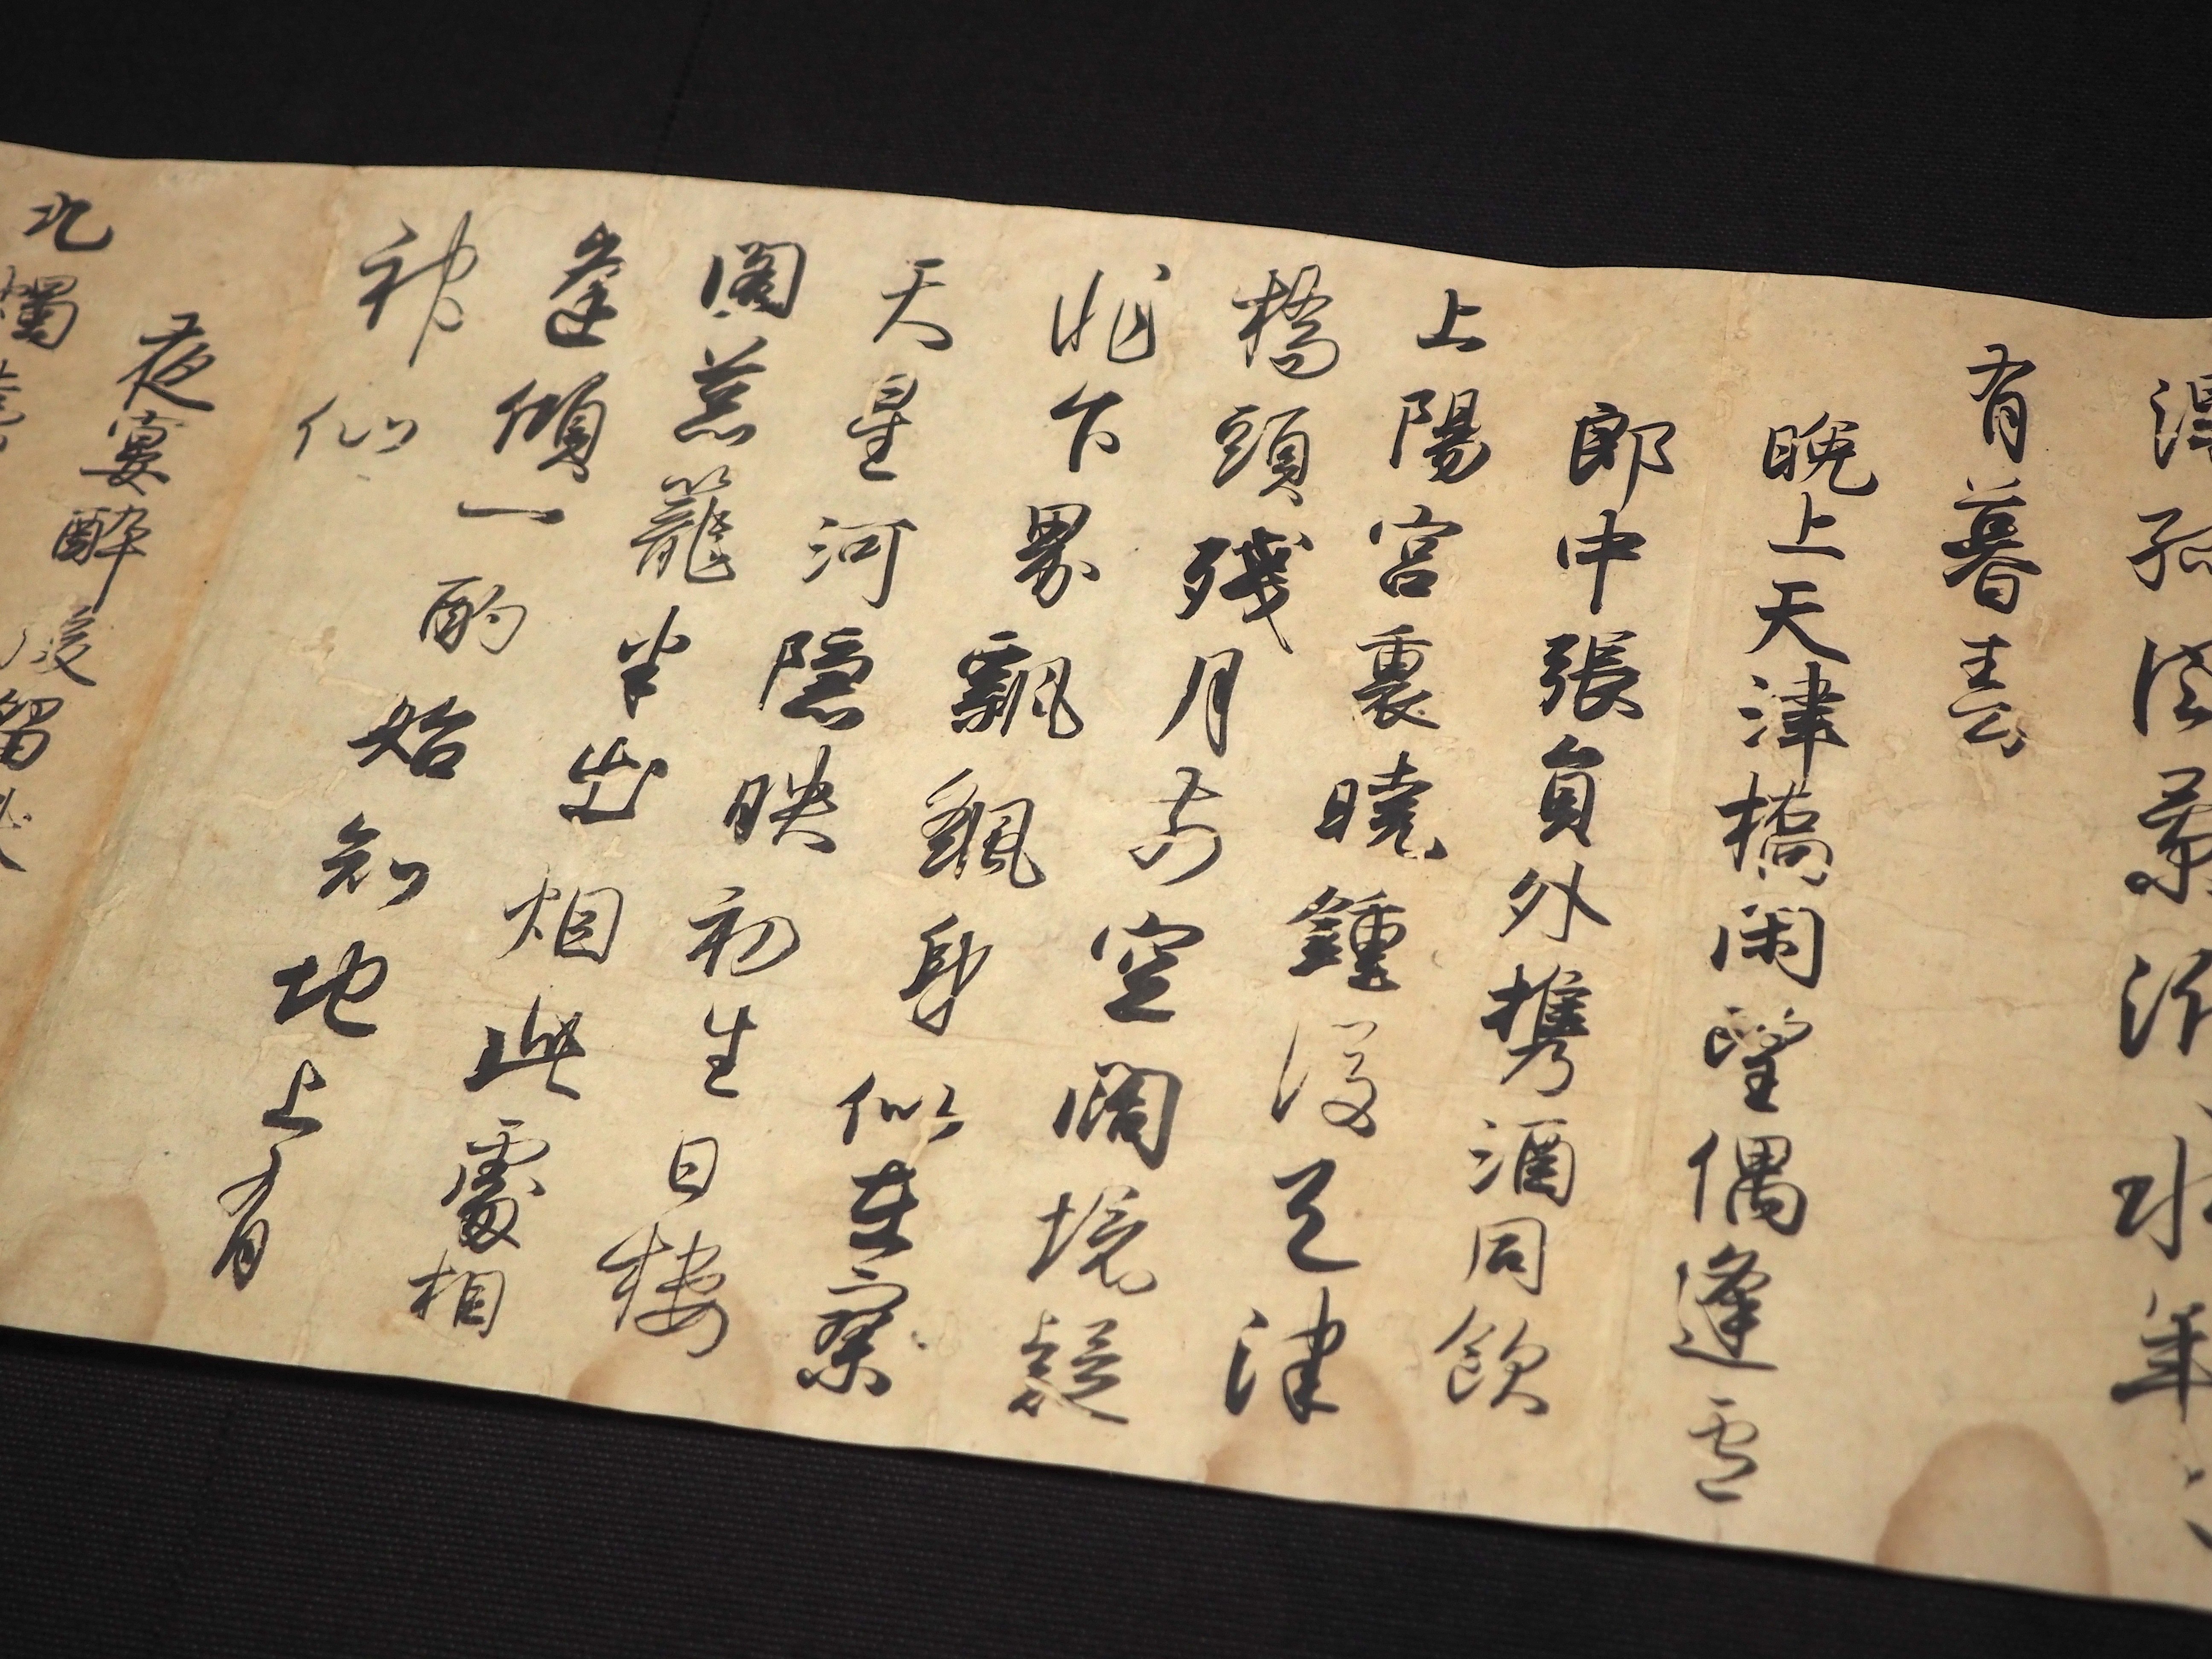 孤 葉 水年
有暮
晩上天津橋閑望偶逢盧
郎中張員外携酒同飲
上陽宮裏曉鍾後天津
橋頭殘月前空闊境疑
非下界飄颻身似在寥
天星河隠映初生日樓
閣葱籠半出烟此處相
逢傾一酌始知地上有
神仙
夜宴醉後留獻
九燭臺